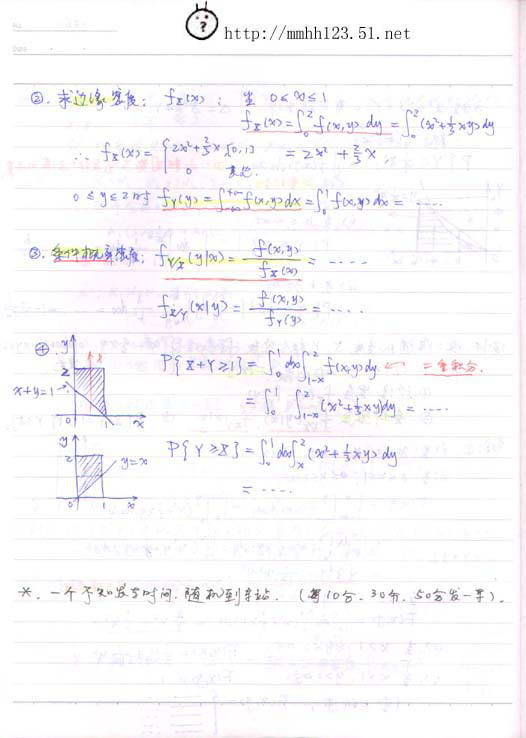 http://mmhh123.51.net
②. 求边缘密度: fX(x): 当 0≤x≤1
fX(x)=∫₀² f(x,y) dy = ∫₀² (x²+⅓xy) dy
∴ fX(x) = { 2x²+⅔x [0,1] = 2x² + ⅔x.
0 其他.
0≤y≤2时 fY(y) = ∫₋∞^+∞ f(x,y) dx = ∫₀¹ f(x,y) dx = ....
③. 条件概率密度: fY/X(y|x) = f(x,y)/fX(x) = ....
fX/Y(x|y) = f(x,y)/fY(y) = ....
④ y 2 x+y=1 0 1 x
P{X+Y≥1} = ∫₀¹ dx ∫₁₋ₓ² f(x,y) dy ← 二重积分.
= ∫₀¹ ∫₁₋ₓ² (x²+⅓xy) dy = ....
y 2 y=x 0 1 x
P{Y≥X} = ∫₀¹ dx ∫ₓ² (x²+⅓xy) dy
= ....
*. 一个不知发车时间. 随机到车站. (每10分. 30分. 50分发一车).